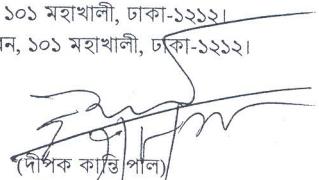 ১০১ মহাখালী, ঢাকা-১২১২।
ন, ১০১ মহাখালী, ঢাকা-১২১২।
(দীপক কান্তি পাল)